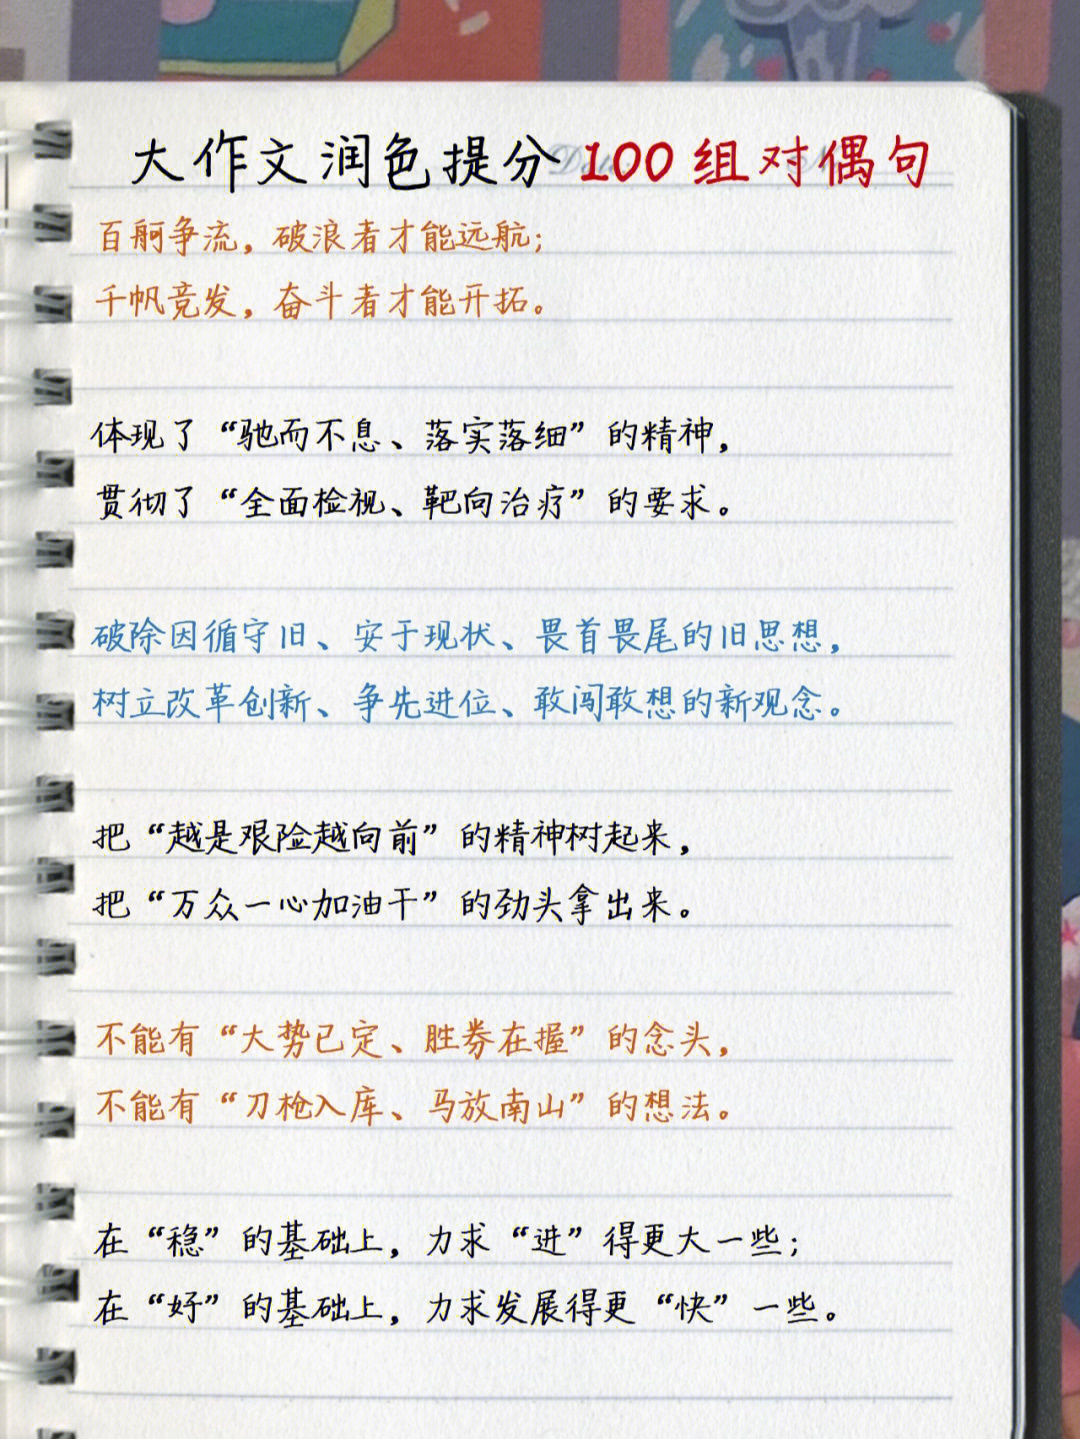 大作文润色提分100组对偶句
百舸争流，破浪者才能远航；
千帆竞发，奋斗者才能开拓。
体现了“驰而不息、落实落细”的精神，
贯彻了“全面检视、靶向治疗”的要求。
破除因循守旧、安于现状、畏首畏尾的旧思想，
树立改革创新、争先进位、敢闯敢想的新观念。
把“越是艰险越向前”的精神树起来，
把“万众一心加油干”的劲头拿出来。
不能有“大势已定、胜券在握”的念头，
不能有“刀枪入库、马放南山”的想法。
在“稳”的基础上，力求“进”得更大一些；
在“好”的基础上，力求发展得更“快”一些。